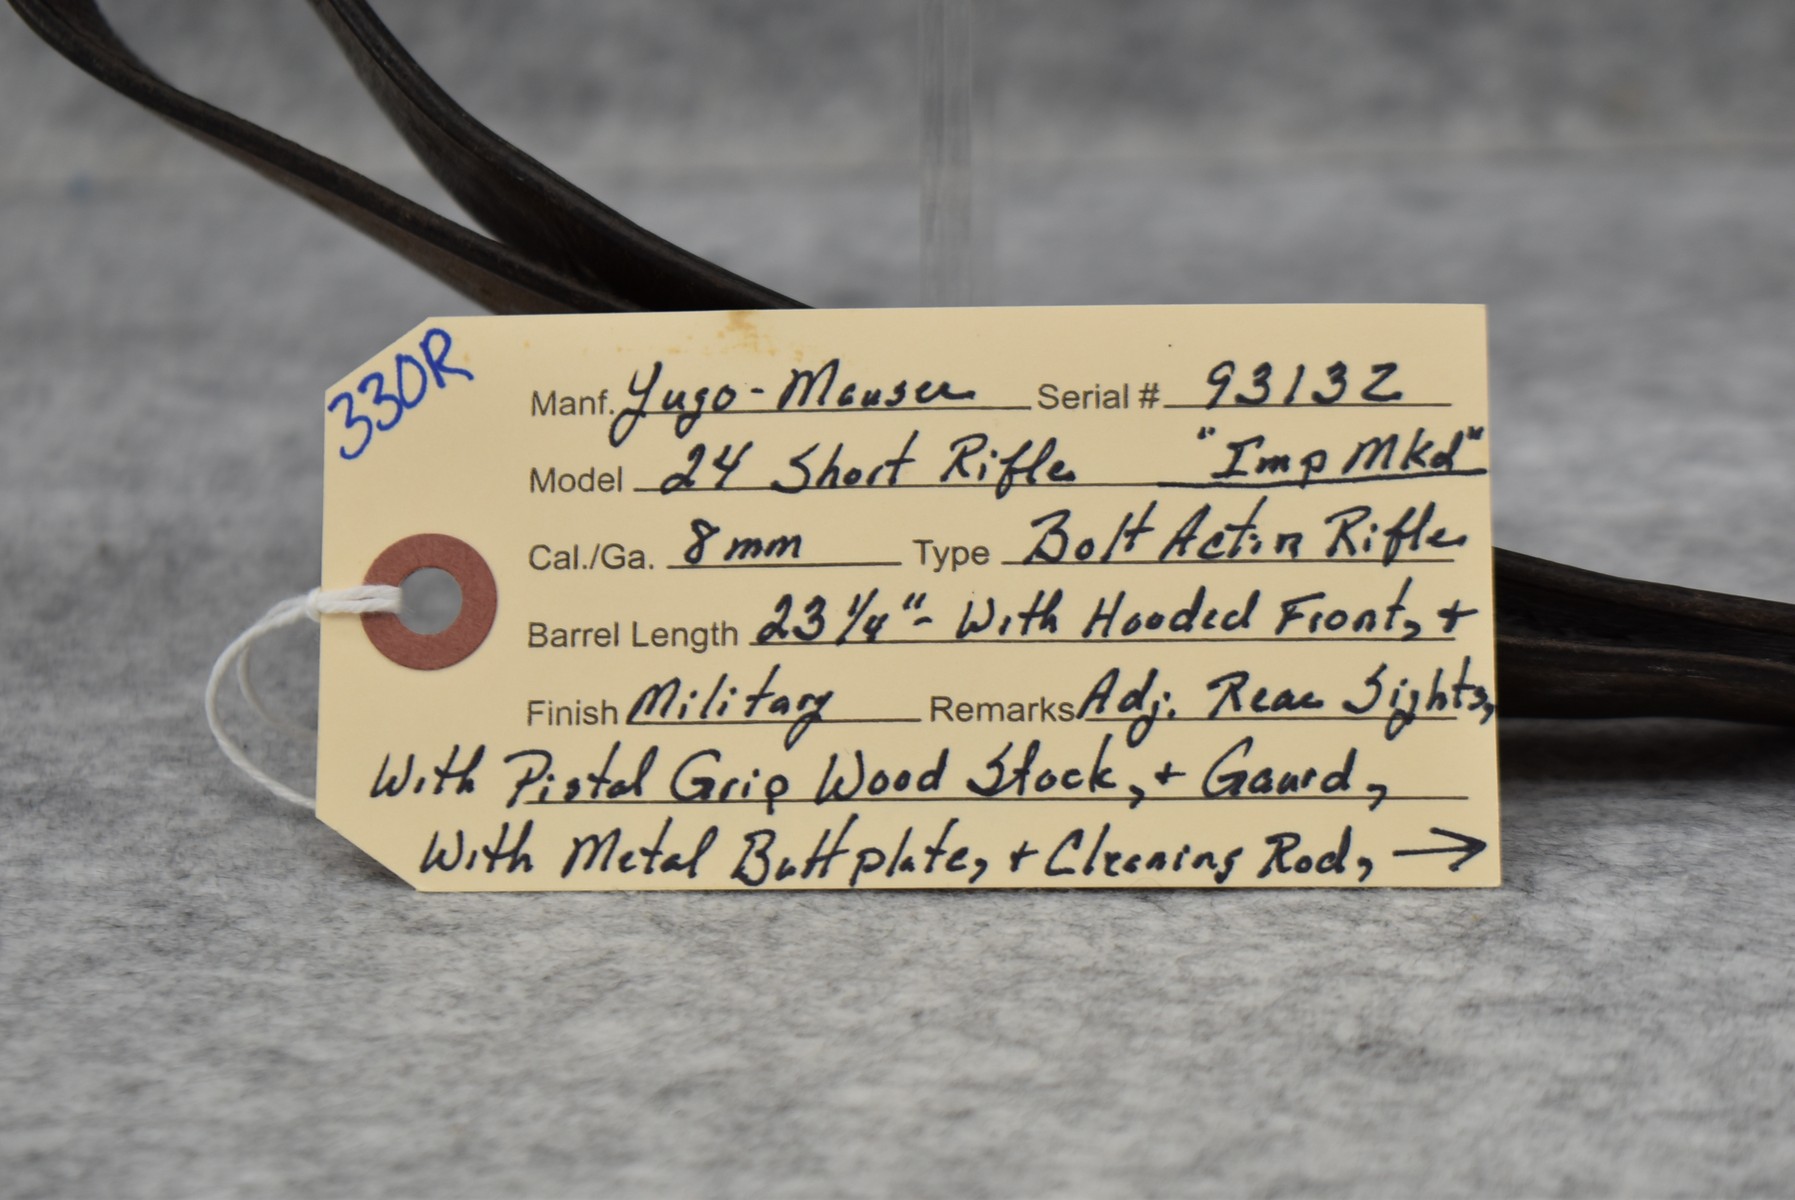 330R
Manf. Yugo-Mauser Serial # 93132
Model 24 Short Rifle "Imp Mkd"
Cal./Ga. 8mm Type Bolt Action Rifle
Barrel Length 23 1/4"- With Hooded Front, +
Finish Military Remarks Adj. Rear Sights,
With Pistol Grip Wood Stock, + Gaurd,
With Metal Buttplate, + Cleaning Rod, →